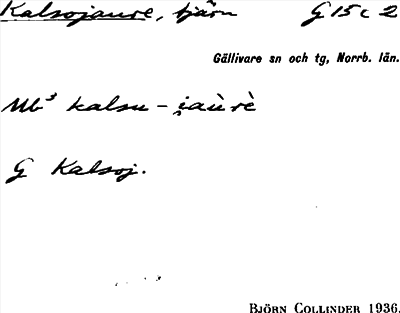 Kalsojaure, tjärn G 15 c 2
Gällivare sn och tg, Norrb. län.
Mb³ kalsu-i̯au̇rè
G Kalsoj.
BJÖRN COLLINDER 1936.